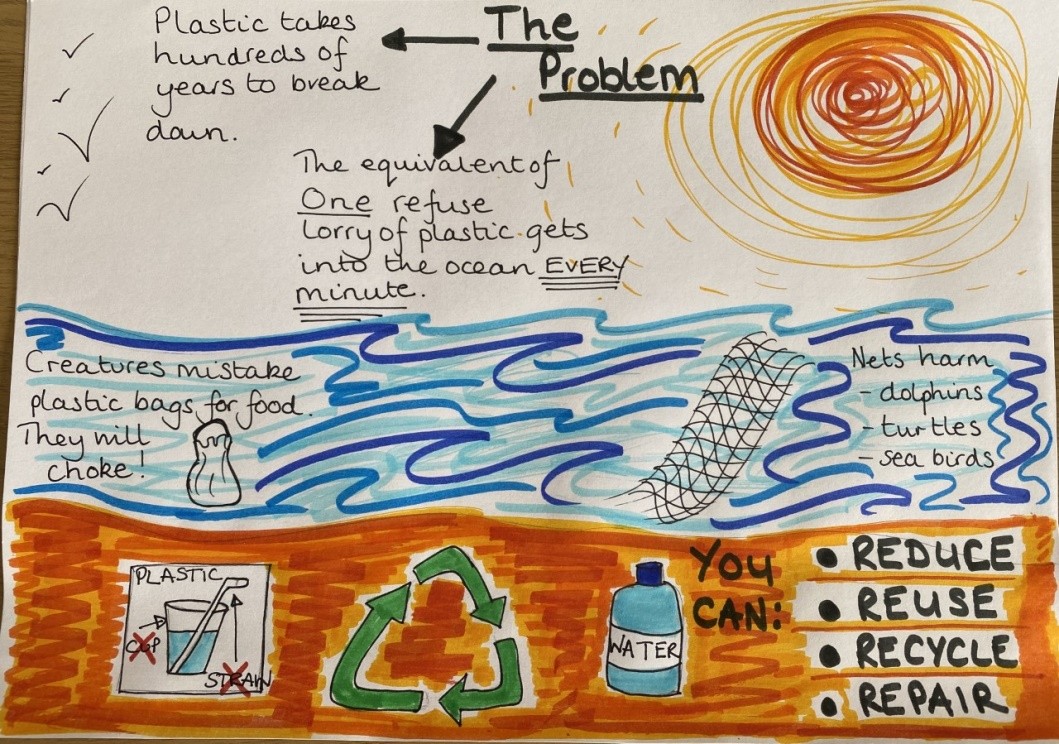 The
Problem
Plastic takes
hundreds of
years to break
down.
The equivalent of
One refuse
lorry of plastic gets
into the ocean EVERY
minute.
Creatures mistake
plastic bags for food.
They will
choke!
Nets harm
- dolphins
- turtles
- sea birds
PLASTIC
CUP
STRAW
WATER
YOU
CAN:
• REDUCE
• REUSE
• RECYCLE
• REPAIR